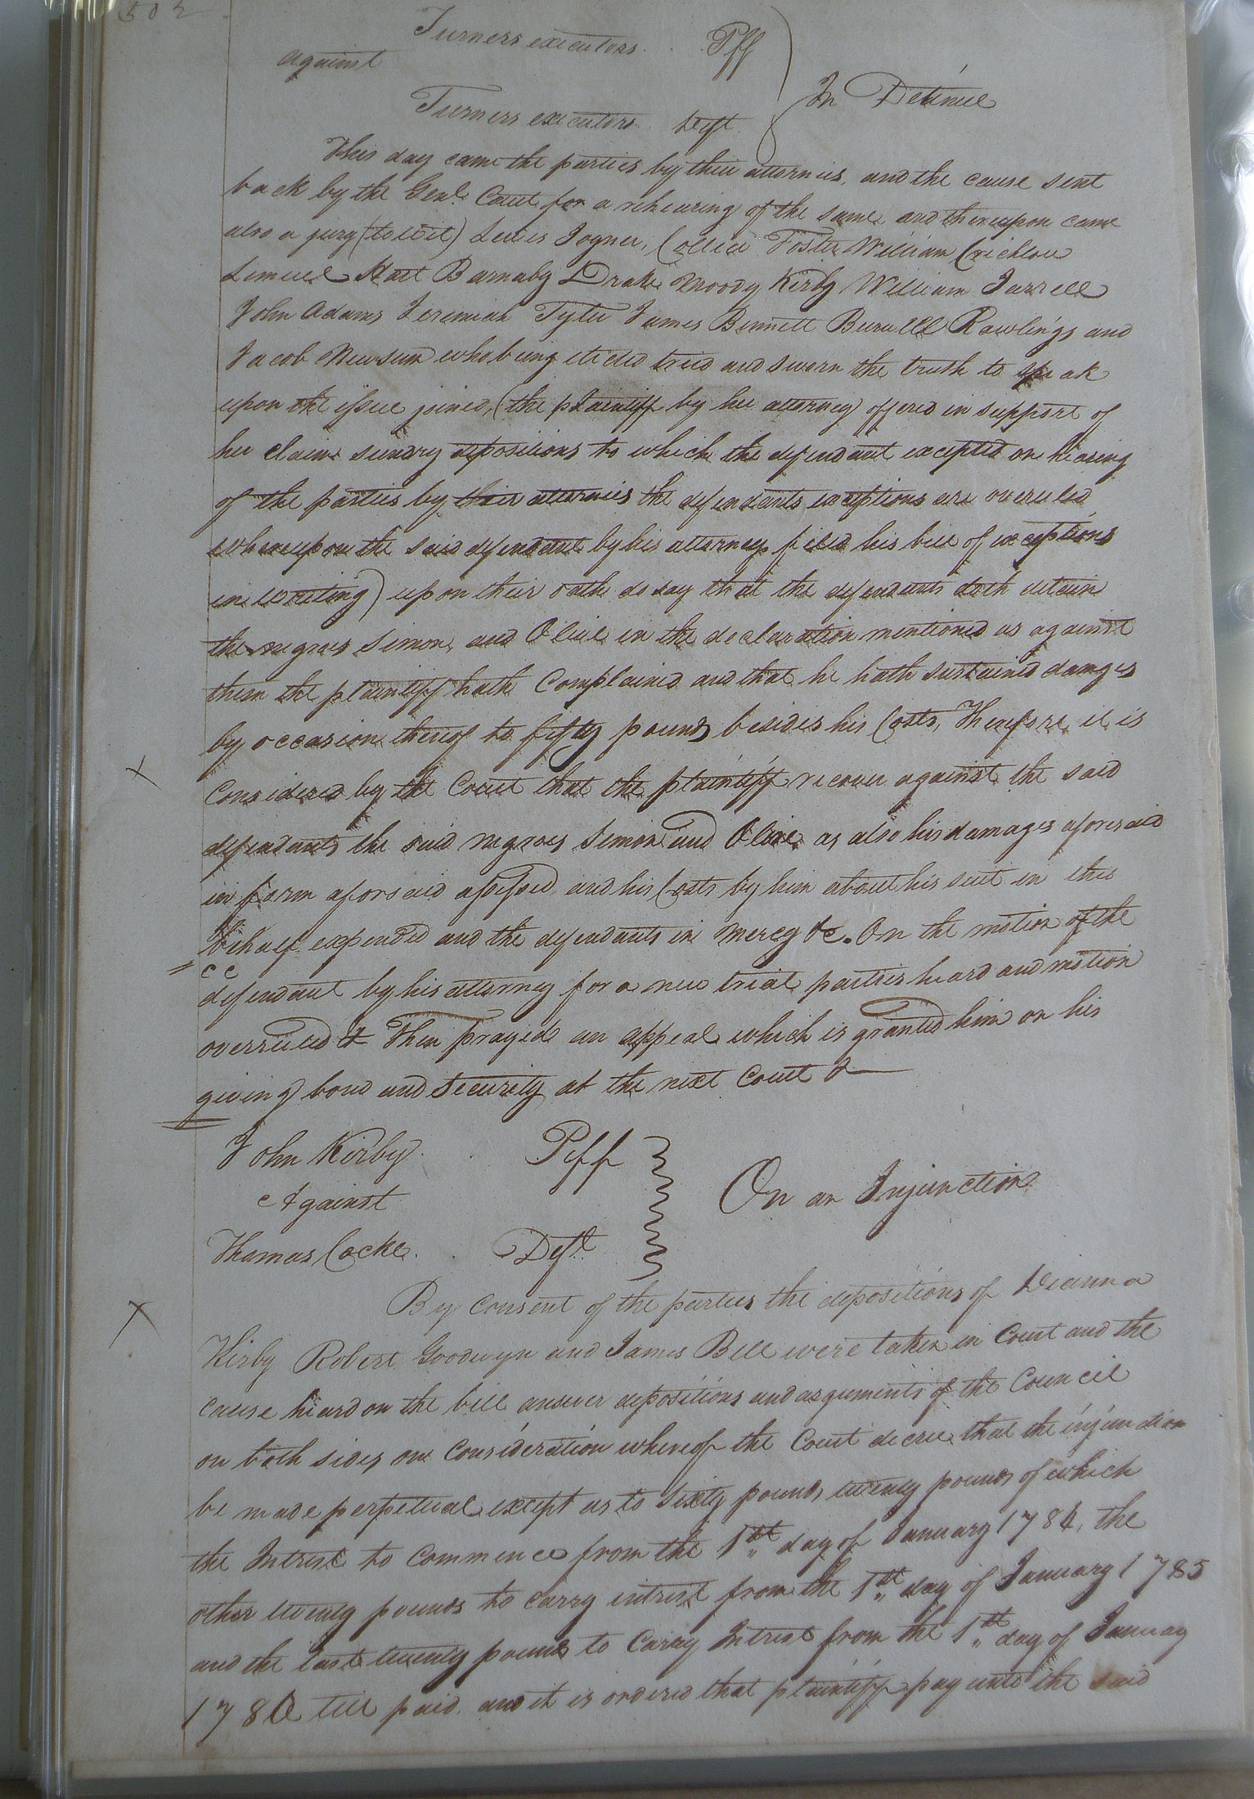 502
Turners executors . . Plff
against
In Detinue
Turners executors Deft
This day came the parties by their attornies, and the cause sent
back by the Genl. Court for a rehearing of the same and thereupon came
also a jury (to wit) Lewis Joyner, Collier Foster William Crichlow
Lemuel Hart Barnaby Drake Moody Kirby William Jarrell
John Adams Jeremiah Tyler James Bennett Burwell Rawlings and
Jacob Newsum who being elected tried and sworn the truth to speak
upon the issue joined, (the plaintiff by her attorney offered in support of
her claim sundry depositions to which the defendant excepted on hearing
of the parties by their attornies the defendants exceptions are overruled
whereupon the said defendant by his attorney filed his bill of exceptions
in writing) upon their oath do say that the defendants doth detain
the negroes Simon, and Olive in the declaration mentioned as against
them the plaintiff hath Complained and that he hath sustained damages
by occasion thereof to fifty pounds besides his Costs, Therefore it is
Considered by the Court that the plaintiff recover against the said
defendants the said negroes Simon and Olive as also his damages aforesaid
in form aforesaid assessed and his Costs by him about his suit in this
behalf expended and the defendants in mercy &c. On the motion of the
defendant by his attorney for a new trial parties heard and motion
overruled & Then prayed an appeal which is granted him on his
giving bond and security at the next Court &
John Kirby . . Plff
Against
On an Injunction
Thomas Cocke . . Deft
By Consent of the parties the depositions of Dianna
Kirby Robert Goodwyn and James Bell were taken in Court and the
cause heard on the bill answer depositions and arguments of the Council
on both sides on Consideration whereof the Court decree that the injunction
be made perpetual except as to sixty pounds twenty pounds of which
the Intrest to commence from the 1st day of January 1784, the
other twenty pounds to carry intrest from the 1st day of January 1785
and the last twenty pounds to Carry Intrest from the 1st day of January
178 till paid and it is ordered that plaintiff pay unto the said